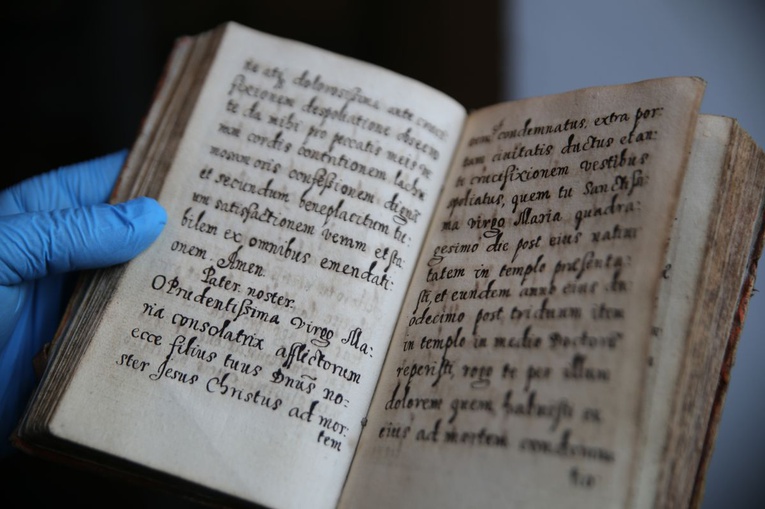 te atq dolorosissima ante cruci
fixionem despoliatione obsecro
te da mihi pro peccatis meis in
mă cordis contritionem lachri
moram oris confessionem, dignă
et secundum beneplacitum tu:
um satisfactionem veram et sta
bilem ex omnibus emendati:
onem. Amen.
Pater noster.
O Prudentissima virgo Ma:
ria consolatrix afflictorum
ecce filius tuus Dnūs no=
ster Jesus Christus ad mor:
tem
condemnatus, extra por:
tam civitatis ductus et an:
te crucifixionem vestibus
spoliatus, quem tu Sanctissi:
ma virgo Maria quadra:
gesimo die post eius nativi
tatem in templo præsenta:
sti, et eundem anno eius du
odecimo post triduum item
in templo in medio Doctorū
reperisti, rogo te per illum
dolorem quem habuisti ex
eius ad mortem condemna
tio